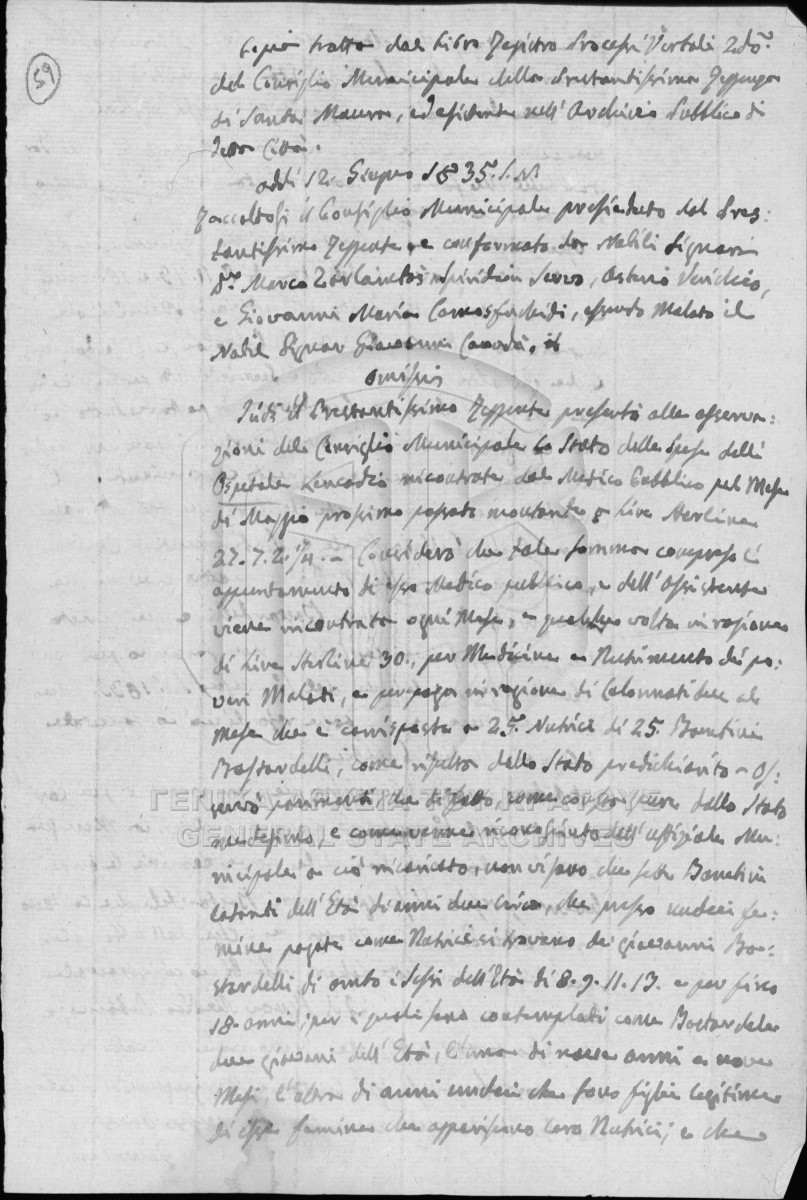 59
Copia tratta dal Libro Registro Processi Verbali 2do.
del Consiglio Municipale della Prestantissima Reggenza
di Santa Maura, ed esistente nell'Archivio Pubblico di
detta Città.
addì 12. Giugno 1835. S.N.
Raccoltosi il Consiglio Municipale presieduto dal Pres:
tantissimo Reggente e conformato da Nobili Signori
Dr. Marco Spiridion Servo,
e Giovanni Maria essendo Malato il
Nobil Signor Giovanni
Omissis
Indi il Prestantissimo Reggente presentò alle osserva:
zioni del Consiglio Municipale lo Stato delle Spese dell'
Ospitale Leucadio incontrate dal Medico Pubblico pel Mese
di Maggio prossimo passato montante a Lire Sterline
27.7.2.1/4. - Considerò che tale somma compreso l'
appuntamento di esso Medico pubblico, e dell'Assistente
viene incontrata ogni Mese, e qualche volta in ragione
di Lire Sterline 30., per Medicine e Nutrimento di po:
veri Malati, e per paga in ragione di Colonnati due al
mese che è corrisposta a 25. Nutrici di 25. Bambini
Bastardelli, come risulta dallo Stato predichiarito - Os:
servò parimenti, che di fatto, come consta pure dallo Stato
medesimo, e come venne riconosciuto dall'uffiziale Mu:
nicipale a ciò incaricato, non vi sono che sette Bambini
lattanti dell'Età di anni due circa, che presso undeci fe:
mine pagate come Nutrici si trovano de giovanni Ba:
stardelli di ambo i Sessi dell'Età di 8. 9. 11. 13. e per fino
18. anni; per i quali sono contemplati come Bastardelle
due giovani dell'Età, l'una di nove anni e nove
Mesi, l'altra di anni undeci che sono figlie legitime
di esse femine che apparivano loro Nutrici; e che
ΓΕΝΙΚΑ ΑΡΧΕΙΑ ΤΟΥ ΚΡΑΤΟΥΣ
GENERAL STATE ARCHIVES